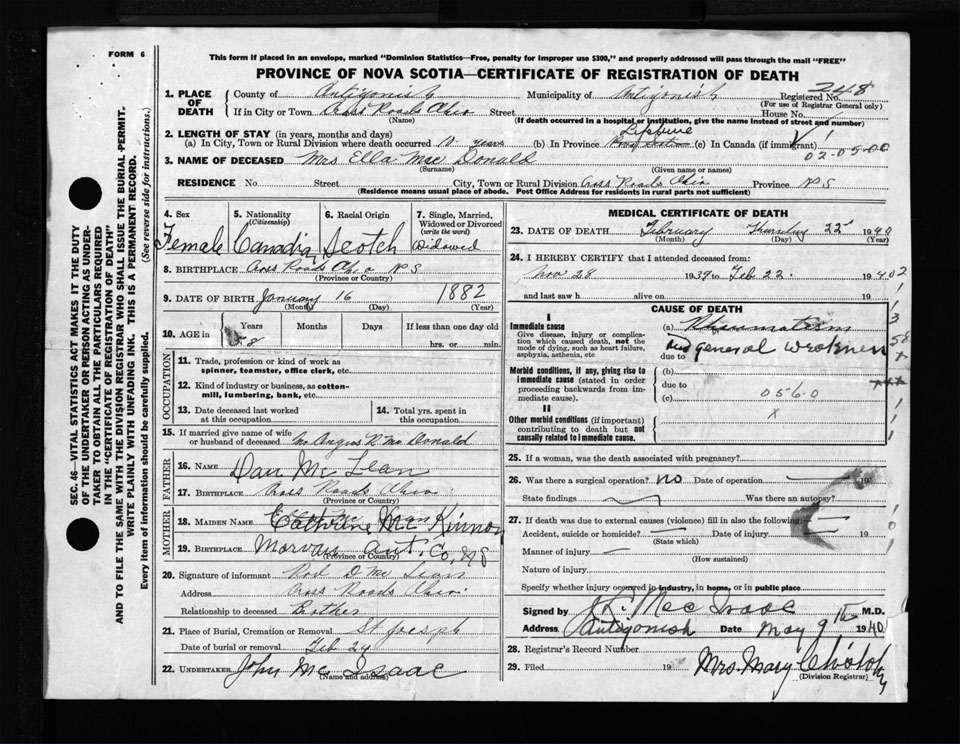 FORM 6
This form if placed in an envelope, marked "Dominion Statistics—Free, penalty for improper use $300," and properly addressed will pass through the mail "FREE"
PROVINCE OF NOVA SCOTIA—CERTIFICATE OF REGISTRATION OF DEATH
248
1. PLACE OF DEATH County of Antigonish Municipality of Antigonish Registered No.
(For use of Registrar General only)
If in City or Town Cross Roads Ohio Street House No.
(Name) (If death occurred in a hospital or institution, give the name instead of street and number)
2. LENGTH OF STAY (in years, months and days) Lifetime
(a) In City, Town or Rural Division where death occurred years (b) In Province (c) In Canada (if immigrant)
02-05-00
3. NAME OF DECEASED Mrs Ella Mac Donald
(Surname) (Given name or names)
RESIDENCE No. Street City, Town or Rural Division Cross Roads Ohio Province N S
(Residence means usual place of abode. Post Office Address for residents in rural parts not sufficient)
4. Sex Female
5. Nationality (Citizenship) Canadian
6. Racial Origin Scotch
7. Single, Married, Widowed or Divorced (write the word) Widowed
8. BIRTHPLACE Cross Roads Ohio N S
(Province or Country)
9. DATE OF BIRTH January 16 1882
(Month) (Day) (Year)
10. AGE in Years Months Days If less than one day old
58 hrs. or min.
OCCUPATION
11. Trade, profession or kind of work as spinner, teamster, office clerk, etc.
12. Kind of industry or business, as cotton-mill, lumbering, bank, etc.
13. Date deceased last worked at this occupation
14. Total yrs. spent in this occupation
15. If married give name of wife or husband of deceased Mr Angus R Mac Donald
FATHER
16. NAME Dan Mc Lean
17. BIRTHPLACE Cross Roads Ohio
(Province or Country)
MOTHER
18. MAIDEN NAME Cathrine Mc Kinnon
19. BIRTHPLACE Morvan Ant. Co, N S
(Province or Country)
20. Signature of informant Rod D Mc Lean
Address Cross Roads Ohio
Relationship to deceased Brother
21. Place of Burial, Cremation or Removal St Joseph
Date of burial or removal Feb 24
22. UNDERTAKER John Mc Isaac
(Name and address)
MEDICAL CERTIFICATE OF DEATH
23. DATE OF DEATH February Thursday 22 1940
(Month) (Day) (Year)
24. I HEREBY CERTIFY that I attended deceased from:
Nov 28 1939 to Feb 22 1940
and last saw h alive on 19
CAUSE OF DEATH
I
Immediate cause
Give disease, injury or complication which caused death, not the mode of dying, such as heart failure, asphyxia, asthenia, etc.
(a) Rheumatism
due to and general weakness
Morbid conditions, if any, giving rise to immediate cause (stated in order proceeding backwards from immediate cause).
(b)
due to
(c) 0560
II
Other morbid conditions (if important) contributing to death but not causally related to immediate cause.
x
25. If a woman, was the death associated with pregnancy?
26. Was there a surgical operation? no Date of operation 19
State findings Was there an autopsy?
27. If death was due to external causes (violence) fill in also the following:
Accident, suicide or homicide? Date of injury 19
(State which)
Manner of injury
(How sustained)
Nature of injury
Specify whether injury occurred in industry, in home, or in public place
Signed by Mac Isaac M.D.
Address Antigonish Date May 9th 1940
28. Registrar's Record Number
29. Filed 19 Mrs. Mary
(Division Registrar)
SEC. 46—VITAL STATISTICS ACT MAKES IT THE DUTY
OF THE UNDERTAKER OR PERSON ACTING AS UNDER-
TAKER TO OBTAIN ALL THE PARTICULARS REQUIRED
IN THE "CERTIFICATE OF REGISTRATION OF DEATH"
AND TO FILE THE SAME WITH THE DIVISION REGISTRAR WHO SHALL ISSUE THE BURIAL PERMIT.
WRITE PLAINLY WITH UNFADING INK. THIS IS A PERMANENT RECORD.
Every item of information should be carefully supplied. (See reverse side for instructions.)